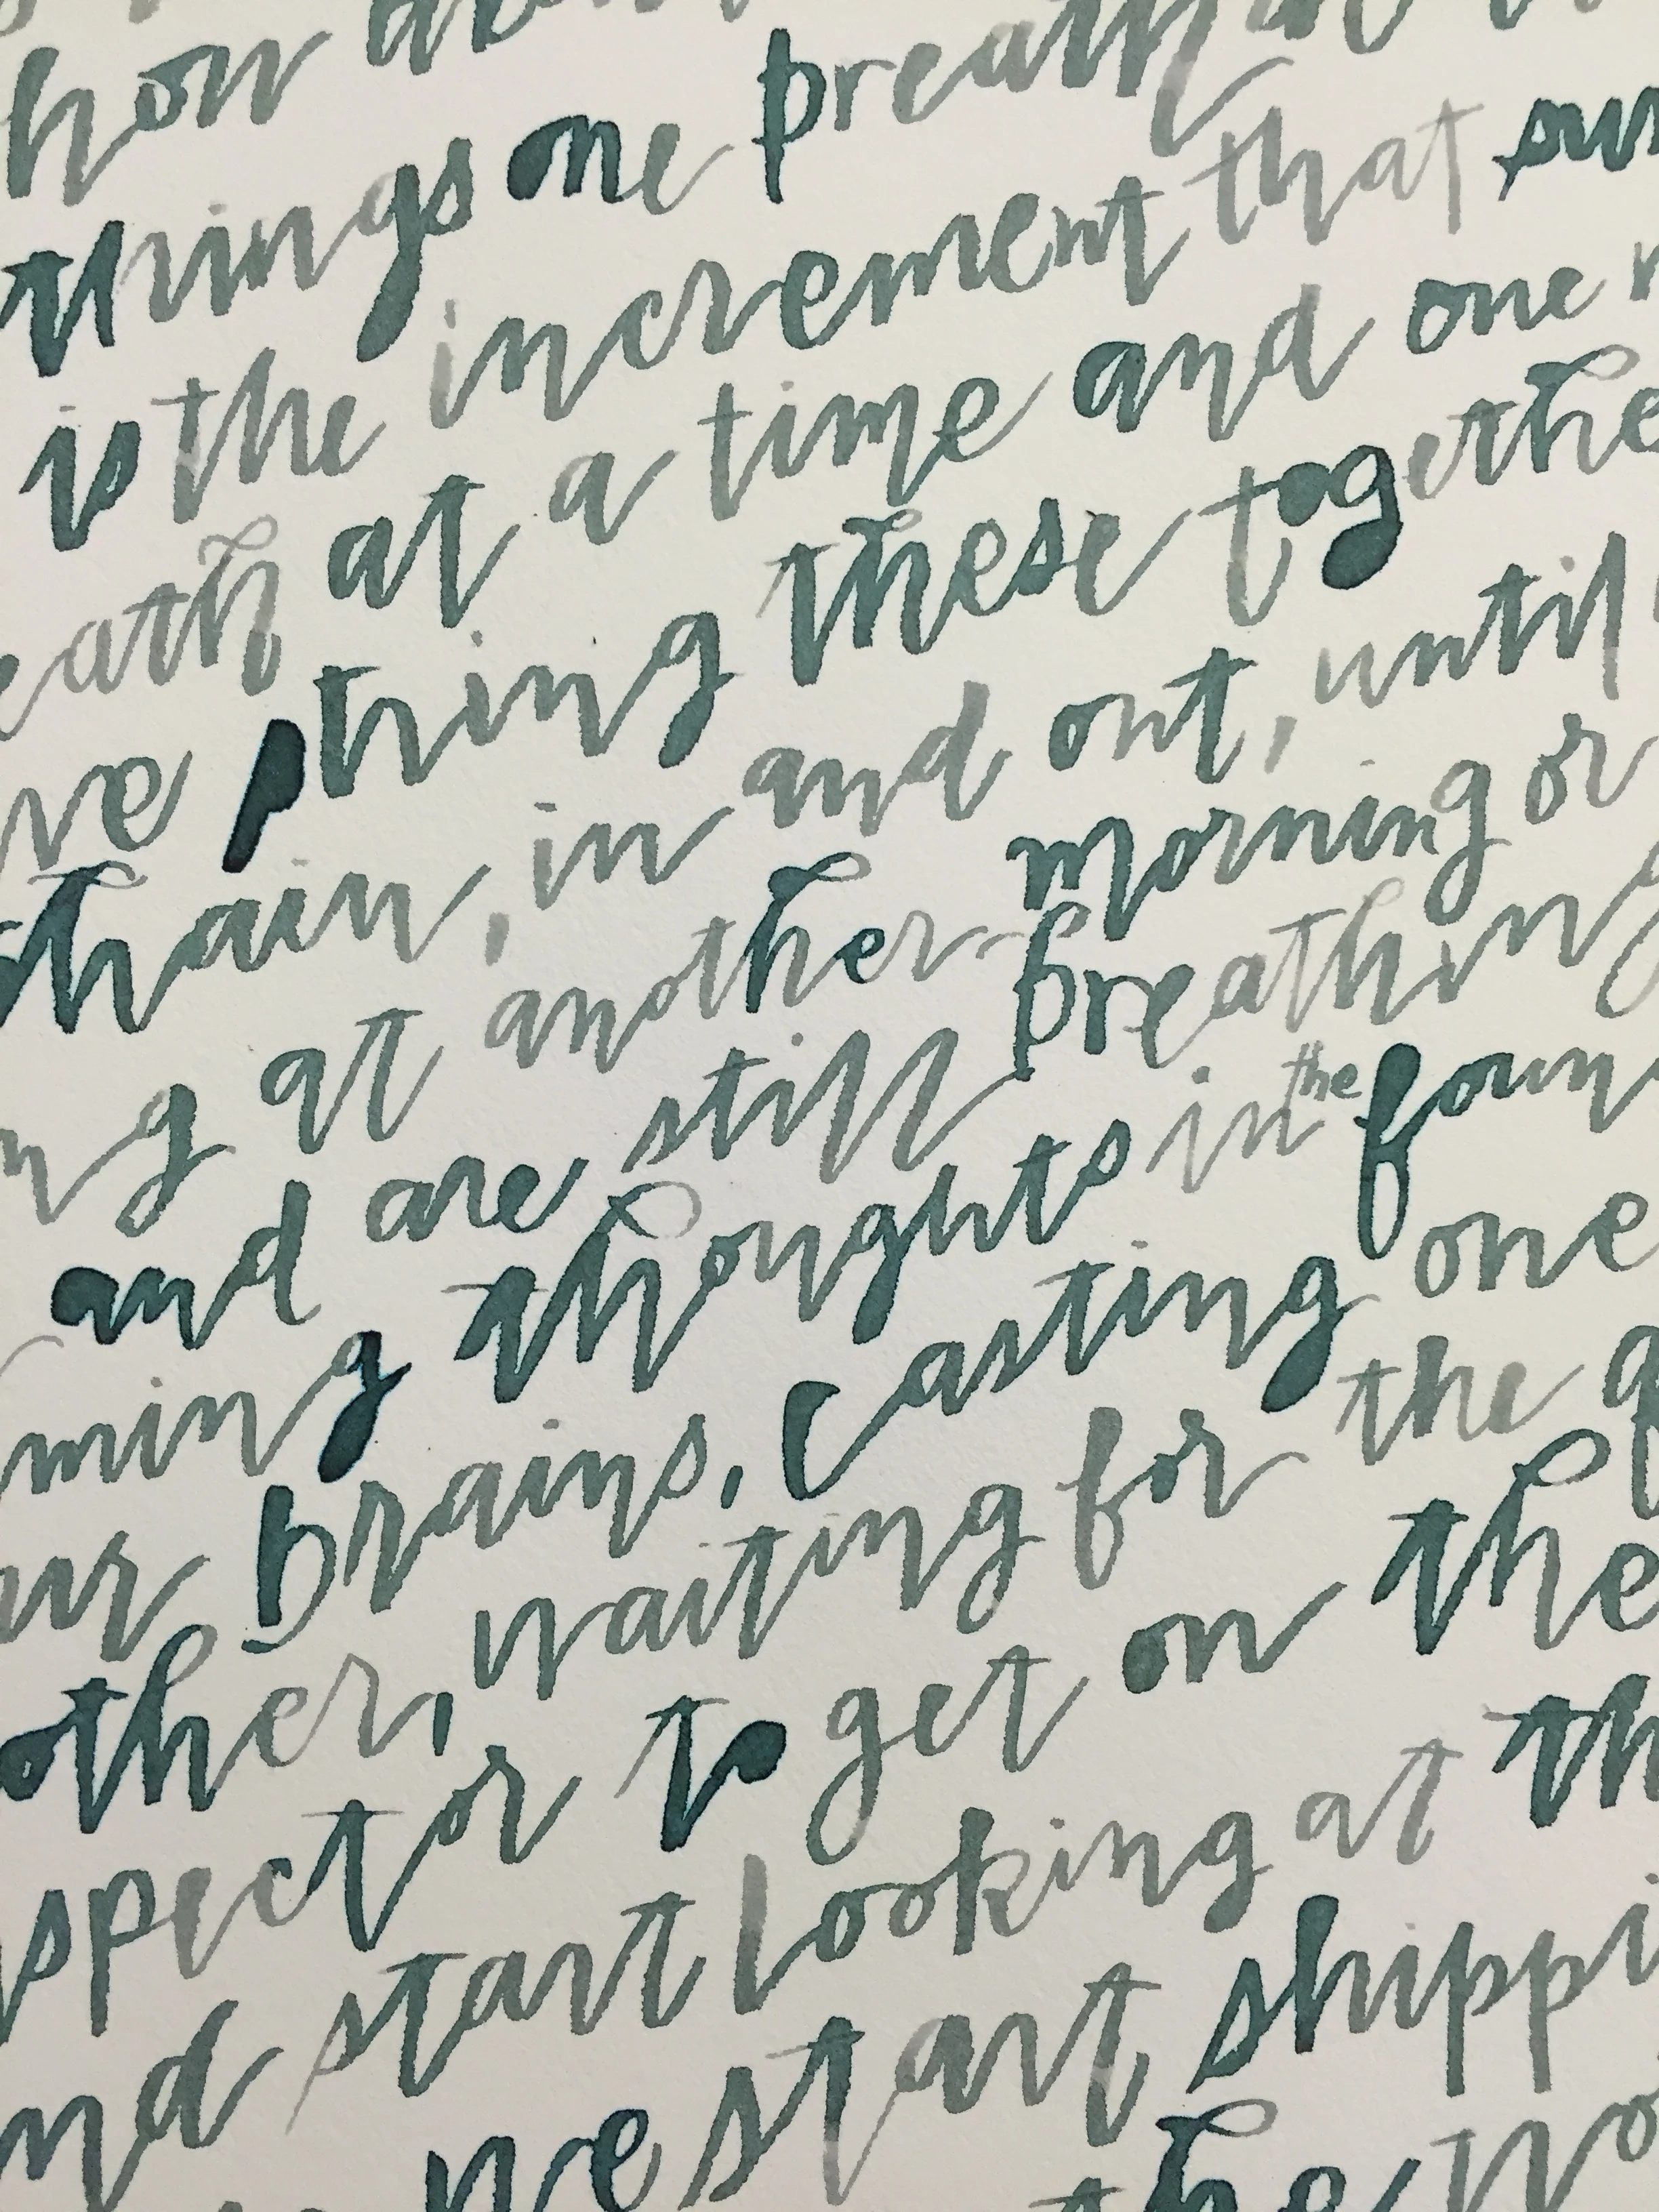 how
things one breath
is the increment that sur
eath at a time and one
ve string these togethe
hain, in and out, until
ng at another morning or
and are still breathing
ming thoughts in the foun
ur brains, casting one
other, waiting for the
spector to get on the
nd start looking at th
we start shippi
the wo